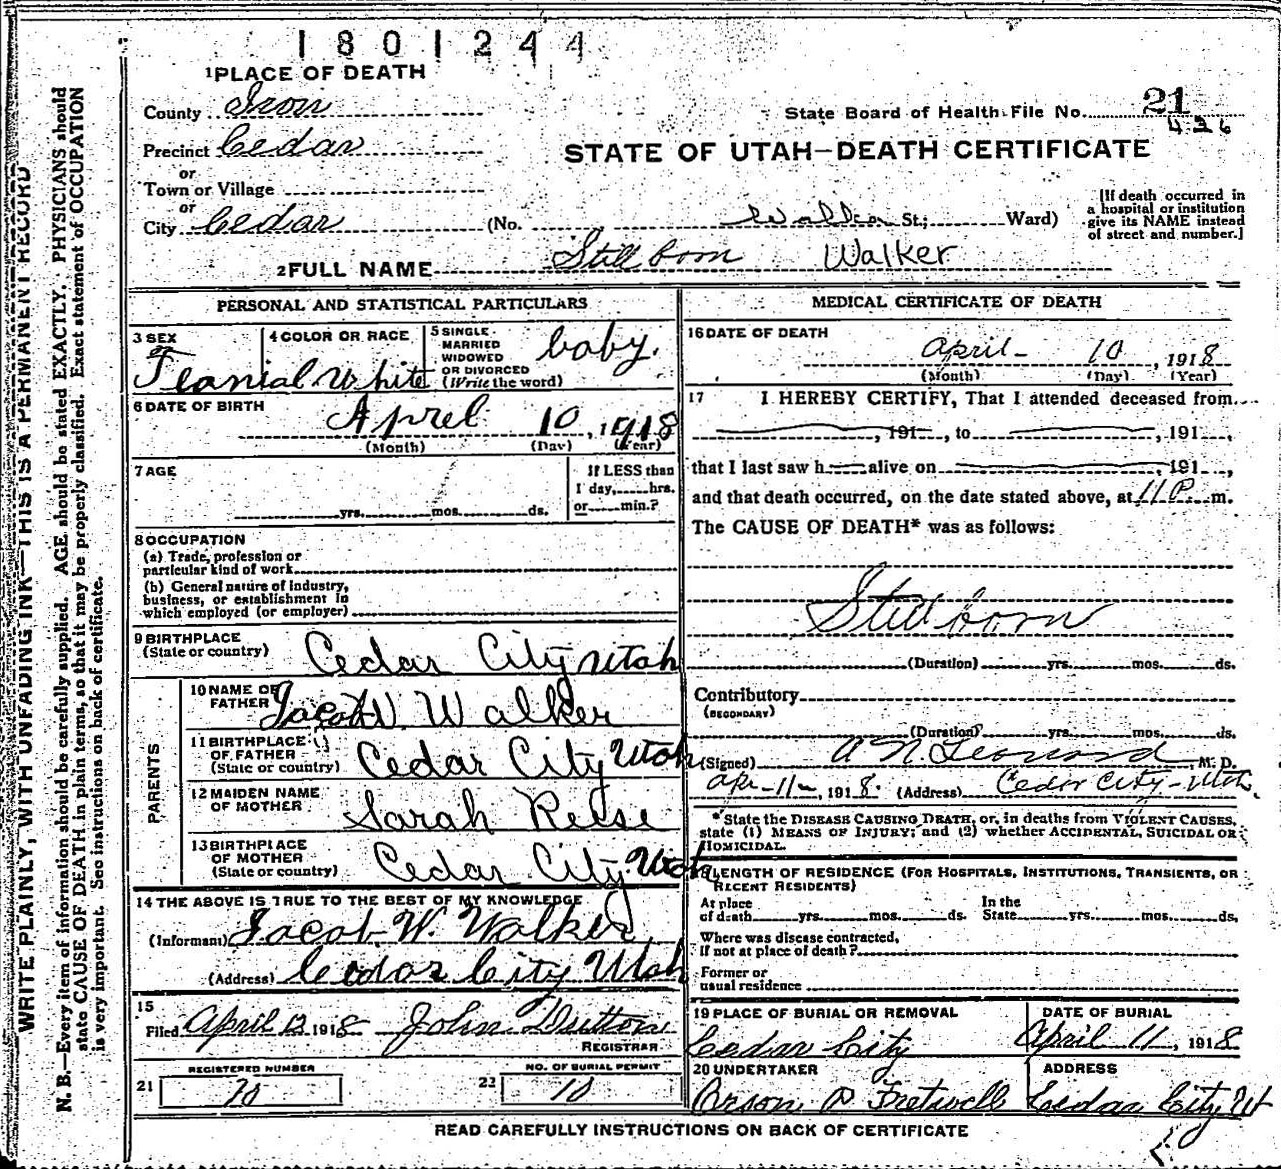 1801244
1 PLACE OF DEATH
County Iron
State Board of Health File No. 21
426
Precinct Cedar
STATE OF UTAH—DEATH CERTIFICATE
or
Town or Village
or
City Cedar (No. St.; Ward)
[If death occurred in a hospital or institution give its NAME instead of street and number.]
2 FULL NAME Still born Walker
PERSONAL AND STATISTICAL PARTICULARS
3 SEX
4 COLOR OR RACE White
5 SINGLE MARRIED WIDOWED OR DIVORCED (Write the word) baby.
6 DATE OF BIRTH
Aprel 10, 1918
(Month) (Day) (Year)
7 AGE
yrs. mos. ds.
If LESS than
1 day, hrs.
or min.?
8 OCCUPATION
(a) Trade, profession or
particular kind of work
(b) General nature of industry,
business, or establishment in
which employed (or employer)
9 BIRTHPLACE
(State or country) Cedar City Utah
PARENTS
10 NAME OF
FATHER Jacob W Walker
11 BIRTHPLACE
OF FATHER
(State or country) Cedar City Utah
12 MAIDEN NAME
OF MOTHER Sarah Reese
13 BIRTHPLACE
OF MOTHER
(State or country) Cedar City Utah
14 THE ABOVE IS TRUE TO THE BEST OF MY KNOWLEDGE
(Informant) Jacob W. Walker
(Address) Cedar City Utah
15
Filed April 12 1918 John Dutton
REGISTRAR
REGISTERED NUMBER
21
NO. OF BURIAL PERMIT
22 10
MEDICAL CERTIFICATE OF DEATH
16 DATE OF DEATH
April 10, 1918
(Month) (Day) (Year)
17 I HEREBY CERTIFY, That I attended deceased from
, 191 , to , 191 ,
that I last saw h alive on , 191 ,
and that death occurred, on the date stated above, at 11 P. m.
The CAUSE OF DEATH* was as follows:
Still born
(Duration) yrs. mos. ds.
Contributory
(SECONDARY)
(Duration) yrs. mos. ds.
(Signed) A N. Leonard M. D.
Apr-11-, 1918. (Address) Cedar City-Utah.
*State the DISEASE CAUSING DEATH, or, in deaths from VIOLENT CAUSES,
state (1) MEANS OF INJURY; and (2) whether ACCIDENTAL, SUICIDAL OR
HOMICIDAL.
LENGTH OF RESIDENCE (FOR HOSPITALS, INSTITUTIONS, TRANSIENTS, OR
RECENT RESIDENTS)
At place In the
of death yrs. mos. ds. State yrs. mos. ds.
Where was disease contracted,
if not at place of death?
Former or
usual residence
19 PLACE OF BURIAL OR REMOVAL
Cedar City
DATE OF BURIAL
April 11, 1918
20 UNDERTAKER
Orson P Fretwell
ADDRESS
Cedar City Ut
READ CAREFULLY INSTRUCTIONS ON BACK OF CERTIFICATE
WRITE PLAINLY, WITH UNFADING INK—THIS IS A PERMANENT RECORD
N. B.—Every item of information should be carefully supplied. AGE should be stated EXACTLY. PHYSICIANS should
state CAUSE OF DEATH in plain terms, so that it may be properly classified. Exact statement of OCCUPATION
is very important. See instructions on back of certificate.